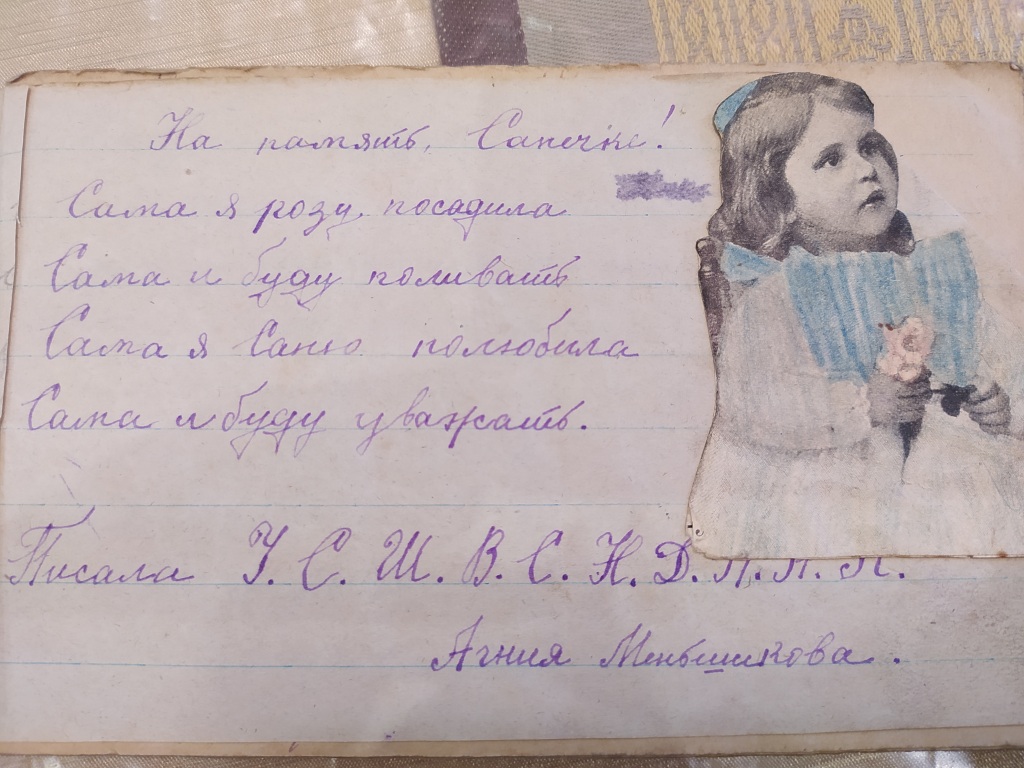 На память, Санечке!
Сама я розу посадила
Сама и буду поливать
Сама я Саню полюбила
Сама и буду уважать.
Писала У. С. Ш. В. С. Н. Д.
Агния Меньшикова.